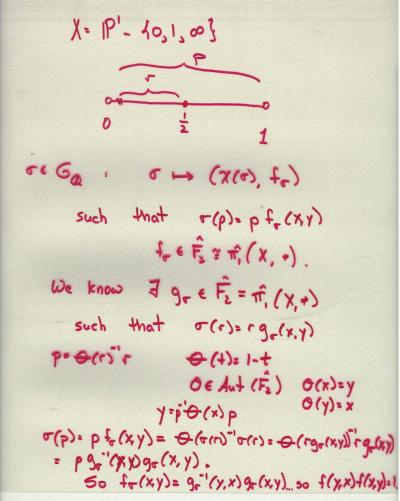 X = ℙ¹ - {0, 1, ∞}
p
r
0 1/2 1
σ ∈ G_ℚ , σ ↦ (χ(σ), f_σ)
such that σ(p) = p f_σ(x,y)
f_σ ∈ F̂₂ ≅ π̂₁(X, *).
We know ∃ g_σ ∈ F̂₂ = π̂₁(X, *)
such that σ(r) = r g_σ(x,y)
p = Θ(r)⁻¹ r Θ(t) = 1-t
Θ ∈ Aut(F̂₂) Θ(x) = y
Θ(y) = x
y = p⁻¹ Θ(x) p
σ(p) = p f_σ(x,y) = Θ(σ(r))⁻¹ σ(r) = Θ(r g_σ(x,y))⁻¹ r g_σ(x,y)
= p g_σ⁻¹(y,x) g_σ(x,y).
So f_σ(x,y) = g_σ⁻¹(y,x) g_σ(x,y)... so f(y,x) f(x,y) = 1.